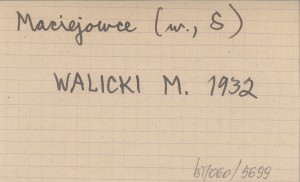 Maciejowce (w., S)
WALICKI M. 1932
67/060/5699